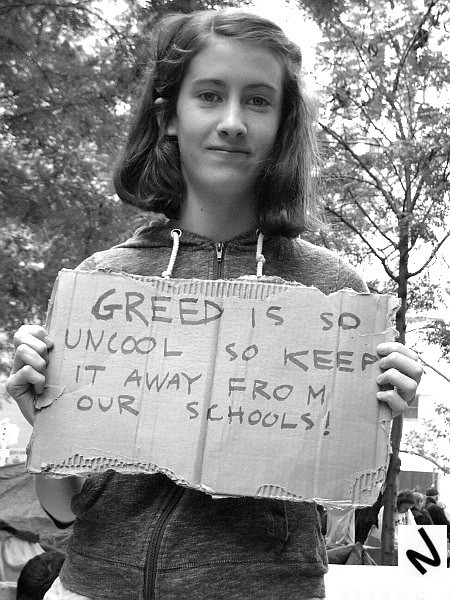 GREED IS SO
UNCOOL SO KEEP
IT AWAY FROM
OUR SCHOOLS!
N